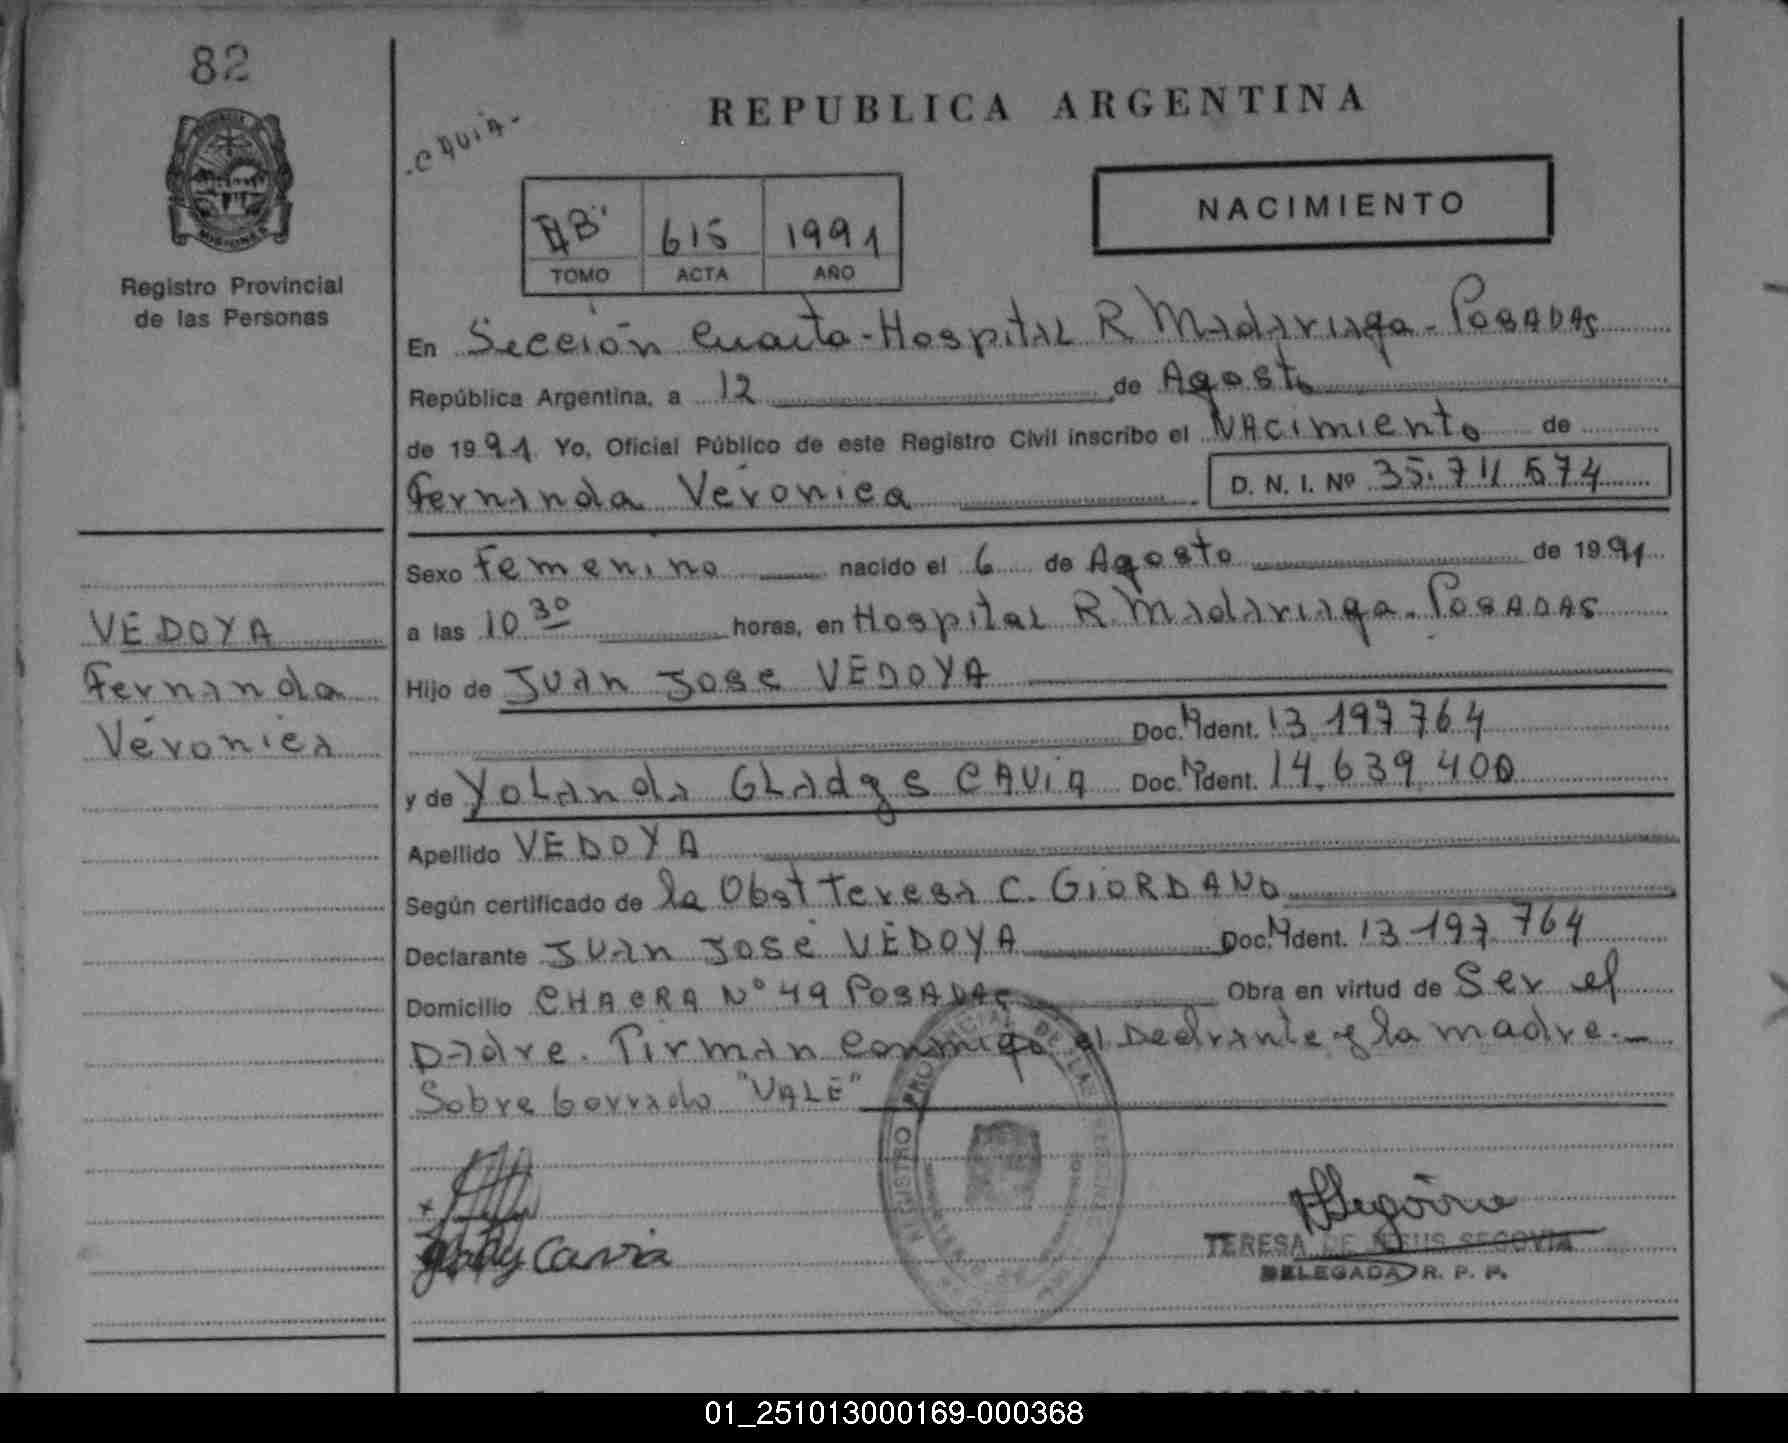 82
REPUBLICA ARGENTINA
CAVIA-
PROVINCIA
MISIONES
Registro Provincial
de las Personas
615 1991
TOMO ACTA AÑO
NACIMIENTO
En Sección Cuarta-Hospital R Madariaga-POSADAS
República Argentina, a 12 de Agosto
de 1991 Yo, Oficial Público de este Registro Civil inscribo el NAcimiento de
Fernanda Verónica D. N. I. Nº 35.711.574
Sexo Femenino nacido el 6 de Agosto de 1991
a las 10 30 horas, en Hospital R. Madariaga-POSADAS
Hijo de Juan José VEDOYA
Doc. Ident. 13.197.764
y de Yolanda GLadys CAViA Doc. Ident. 14.639.400
Apellido VEDOYA
Según certificado de la Obst Teresa C. GiORDANO
Declarante Juan José VEDOYA Doc. Ident. 13.197.764
Domicilio CHACRA Nº 49 POSADAS Obra en virtud de Ser el
padre. Firman conmigo el Declrante y la madre.-
Sobre borrado "VALE"
VEDOYA
Fernanda
Verónica
REGISTRO PROVINCIAL DE LAS PERSONAS
Glady Cavia
TERESA DE JESUS SEGOVIA
DELEGADA R. P. P.
01_251013000169-000368